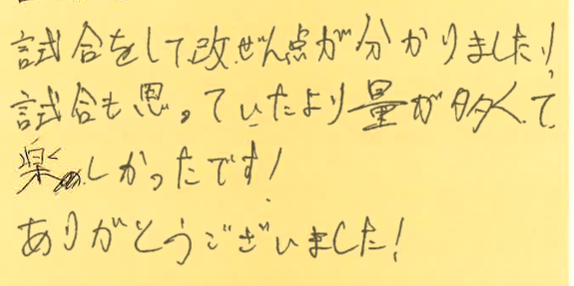 試合をして改ぜん点が分かりました!
試合も思っていたより量が多くて
楽しかったです!
ありがとうございました!